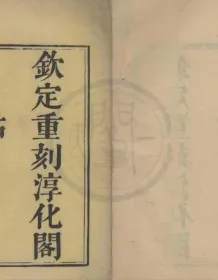 欽定重刻淳化閣